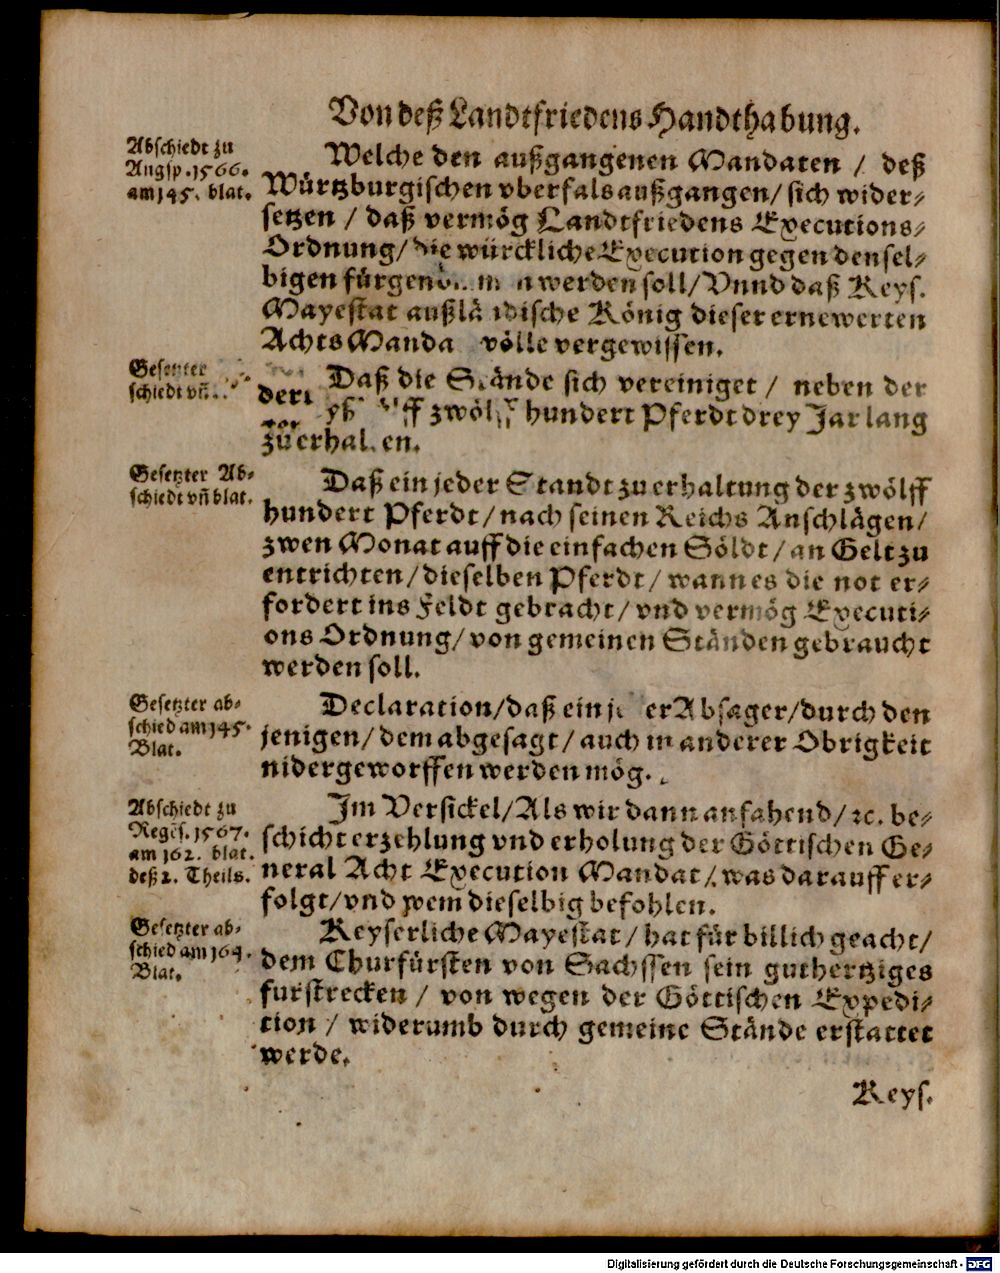 Von deß Landtfriedens Handthabung.
Abschiedt zu
Augsp. 1566.
am 145. blat.
Welche den außgangenen Mandaten / deß
Würtzburgischen vberfals außgangen/ sich wider-
setzen / daß vermög Landtfriedens Executions-
Ordnung/ die würckliche Execution gegen densel-
bigen werden soll/ Vnnd daß Keys.
Mayestat König dieser ernewerten
Achts völle vergewissen.
Gesetzter
schiedt vñ
Daß die Stände sich vereiniget / neben der
zwölff hundert Pferdt drey Jar lang
zu erhalten.
Gesetzter Ab-
schiedt vñ blat.
Daß ein jeder Standt zu erhaltung der zwölff
hundert Pferdt/ nach seinen Reichs Anschlägen/
zwen Monat auff die einfachen Söldt/ an Gelt zu
entrichten/ dieselben Pferdt/ wann es die not er-
fordert ins Feldt gebracht/ vnd vermög Executi-
ons Ordnung/ von gemeinen Ständen gebraucht
werden soll.
Gesetzter ab-
schied am 145.
Blat.
Declaration/ daß ein Absager/ durch den
jenigen/ dem abgesagt/ auch in anderer Obrigkeit
nidergeworffen werden mög.
Abschiedt zu
Regēs. 1567.
am 162. blat.
deß 2. Theils.
Im Versickel/ Als wir dann anfahend/ ꝛc. be-
schicht erzehlung vnd erholung der Göttischen Ge-
neral Acht Execution Mandat/ was darauff er-
folgt/ vnd wem dieselbig befohlen.
Gesetzter ab-
schied am 164.
Blat.
Keyserliche Mayestat/ hat für billich geacht/
dem Churfürsten von Sachssen sein guthertziges
furstrecken / von wegen der Göttischen Expedi-
tion / widerumb durch gemeine Stände erstattet
werde.
Keys.
Digitalisierung gefördert durch die Deutsche Forschungsgemeinschaft - DFG